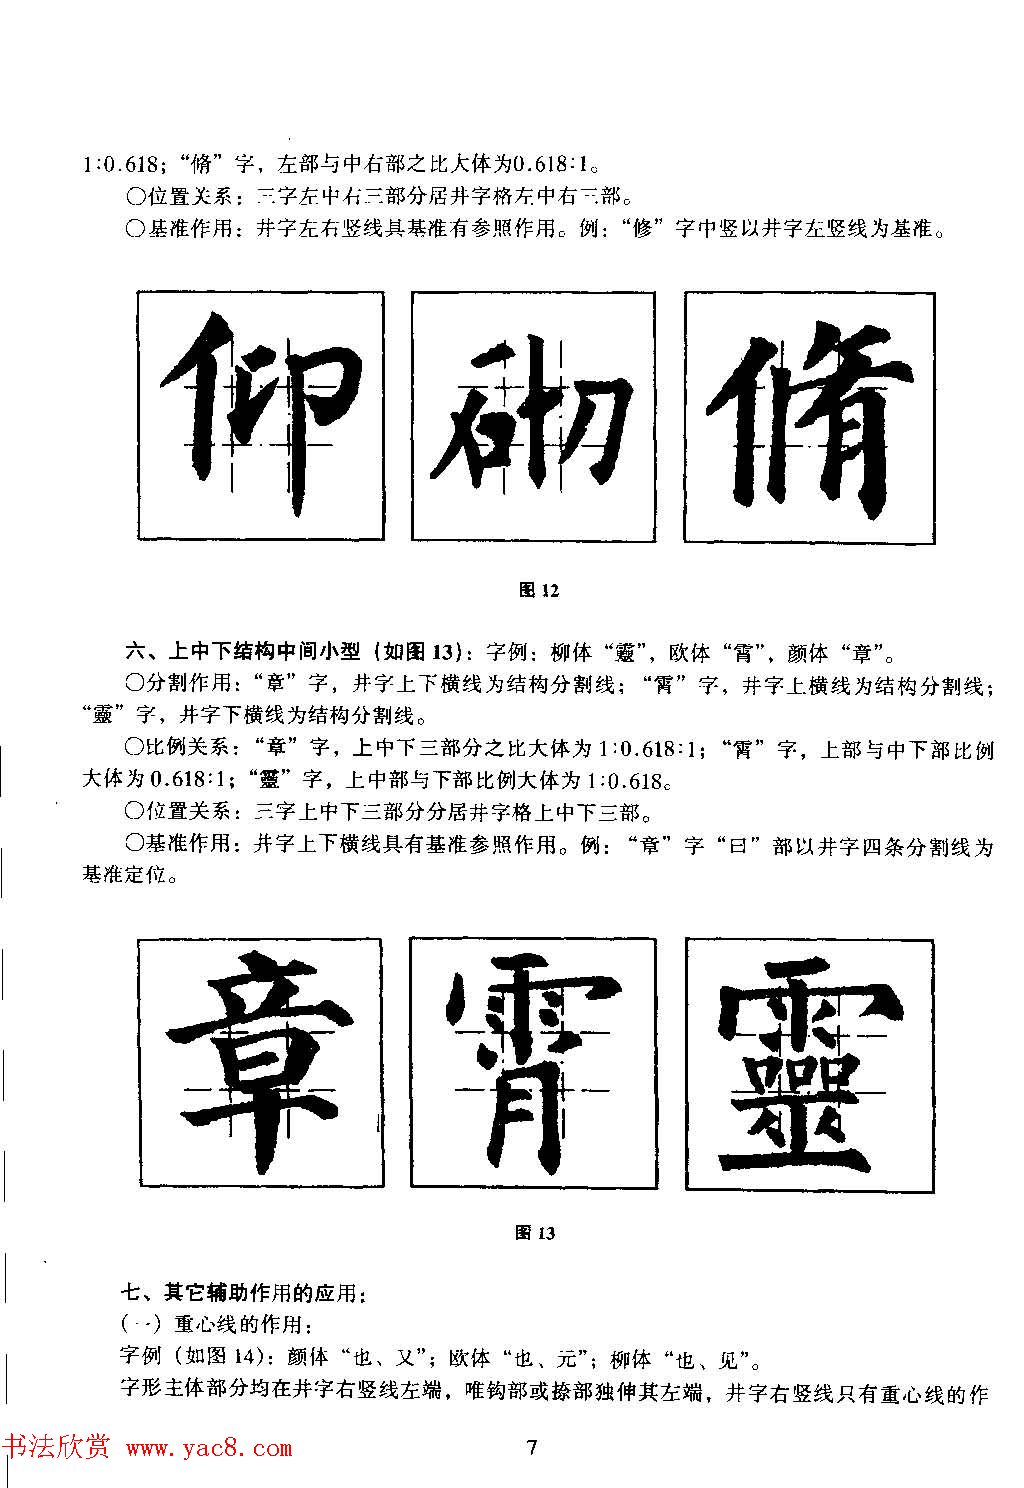 1:0.618；“脩”字，左部与中右部之比大体为0.618:1。
〇位置关系：三字左中右三部分居井字格左中右三部。
〇基准作用：井字左右竖线具基准有参照作用。例：“修”字中竖以井字左竖线为基准。
仰 砌 脩
图 12
六、上中下结构中间小型（如图 13）：字例：柳体“靈”，欧体“霄”，颜体“章”。
〇分割作用：“章”字，井字上下横线为结构分割线；“霄”字，井字上横线为结构分割线；
“靈”字，井字下横线为结构分割线。
〇比例关系：“章”字，上中下三部分之比大体为 1:0.618:1；“霄”字，上部与中下部比例
大体为 0.618:1；“靈”字，上中部与下部比例大体为 1:0.618。
〇位置关系：三字上中下三部分分居井字格上中下三部。
〇基准作用：井字上下横线具有基准参照作用。例：“章”字“日”部以井字四条分割线为
基准定位。
章 霄 靈
图 13
七、其它辅助作用的应用：
（一）重心线的作用：
字例（如图 14）：颜体“也、又”；欧体“也、元”；柳体“也、见”。
字形主体部分均在井字右竖线左端，唯钩部或捺部独伸其左端，井字右竖线只有重心线的作
书法欣赏 www.yac8.com
7